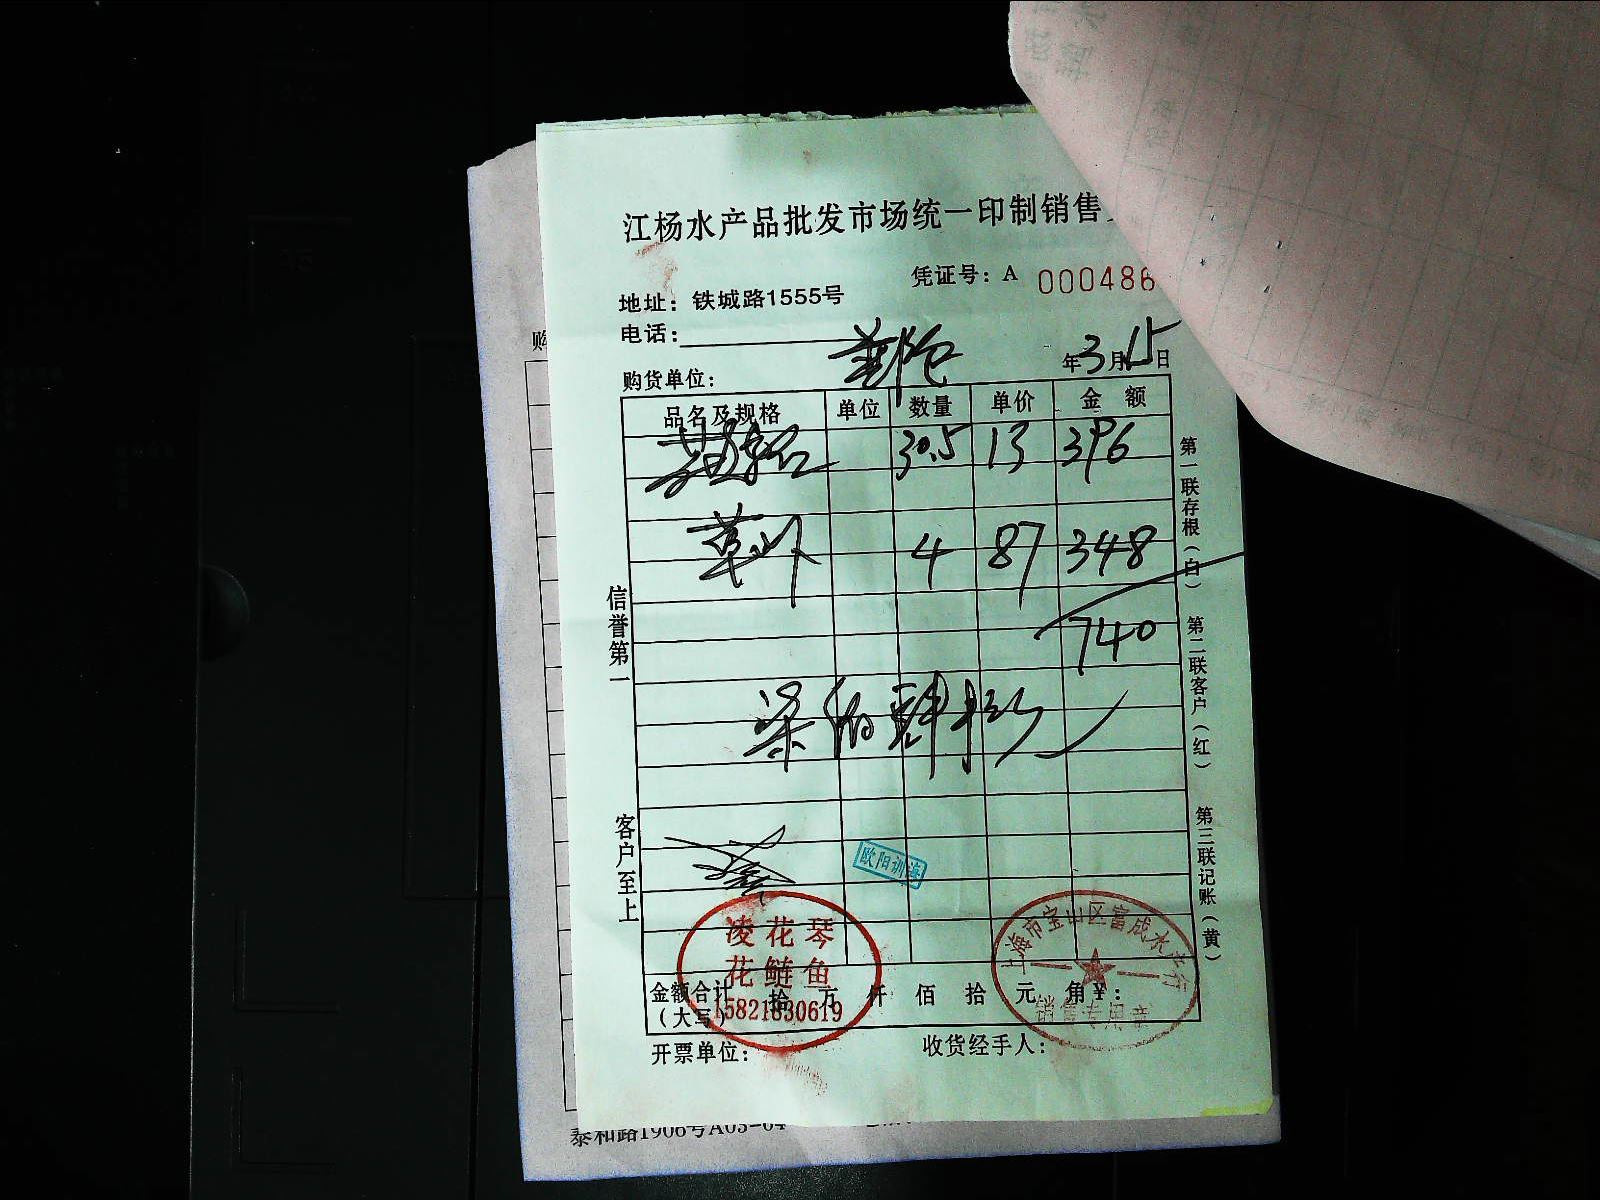 江杨水产品批发市场统一印制销售
凭证号：A 000486
地址：铁城路1555号
电话：
年3月15日
购货单位：
品名及规格 单位 数量 单价 金额
30.5 13 396
草虾 4 87 348
740
柒佰肆拾
信誉第一
客户至上
第一联存根（白） 第二联客户（红） 第三联记账（黄）
欧阳训海
凌花琴
花鲢鱼
15821830619
上海市宝山区富成水产行
销售专用章
金额合计（大写） 拾 万 仟 佰 拾 元 角 ¥：
开票单位： 收货经手人：
购
泰和路1906号A03-04